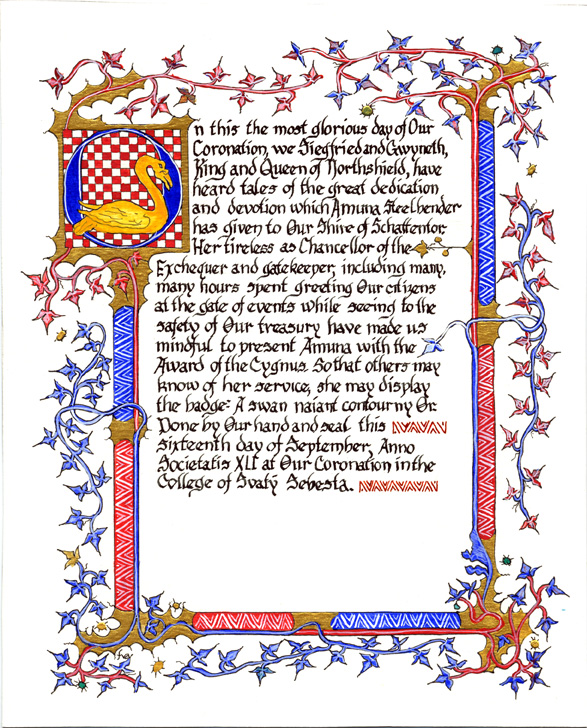 On this the most glorious day of Our
Coronation, we Siegfried and Gwyneth,
King and Queen of Northshield, have
heard tales of the great dedication
and devotion which Amuna Steelbender
has given to Our Shire of Schattentor.
Her tireless as Chancellor of the
Exchequer and gatekeeper, including many,
many hours spent greeting Our citizens
at the gate of events while seeing to the
safety of Our treasury have made us
mindful to present Amuna with the
Award of the Cygnus. So that others may
know of her service, she may display
the badge: A swan naiant contourny Or.
Done by Our hand and seal this
sixteenth day of September, Anno
Societatis XLI at Our Coronation in the
College of Svatý Sebesta.